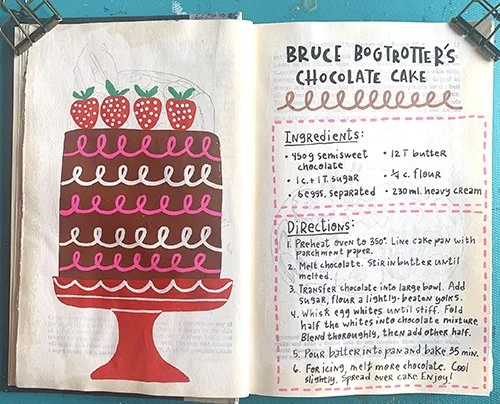 BRUCE BOGTROTTER'S
CHOCOLATE CAKE
Ingredients:
• 450g semisweet chocolate
• 1 c. + 1 T. sugar
• 6 eggs, separated
• 12 T butter
• ¼ c. flour
• 230 ml. heavy cream
Directions:
1. Preheat oven to 350°. Line cake pan with
parchment paper.
2. Melt chocolate. Stir in butter until
melted.
3. Transfer chocolate into large bowl. Add
sugar, flour & lightly-beaten yolks.
4. Whisk egg whites until stiff. Fold
half the whites into chocolate mixture
Blend thoroughly, then add other half.
5. Pour batter into pan and bake 35 min.
6. For icing, melt more chocolate. Cool
slightly. Spread over cake. Enjoy!